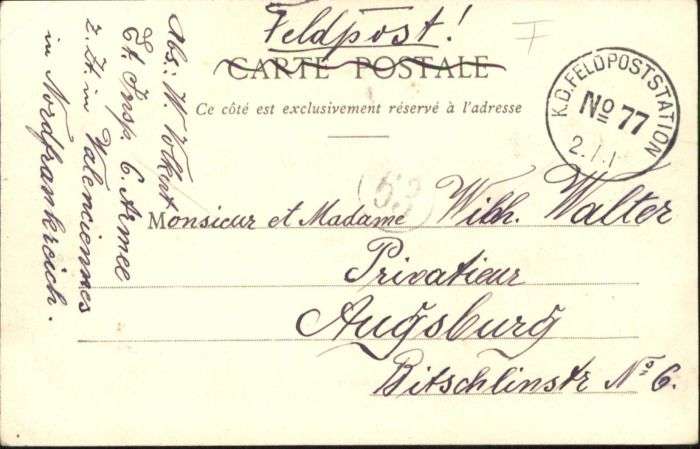 Feldpost!
CARTE POSTALE
Ce côté est exclusivement réservé à l'adresse
K.D. FELDPOSTSTATION
No 77
2.1.1
53
Abs: W. Volkert
Et. Insp. 6. Armee
z. Zt in Valenciennes
in Nordfrankreich.
Monsieur et Madame Wilh. Walter
Privatieur
Augsburg
Bitschlinstr No 6.